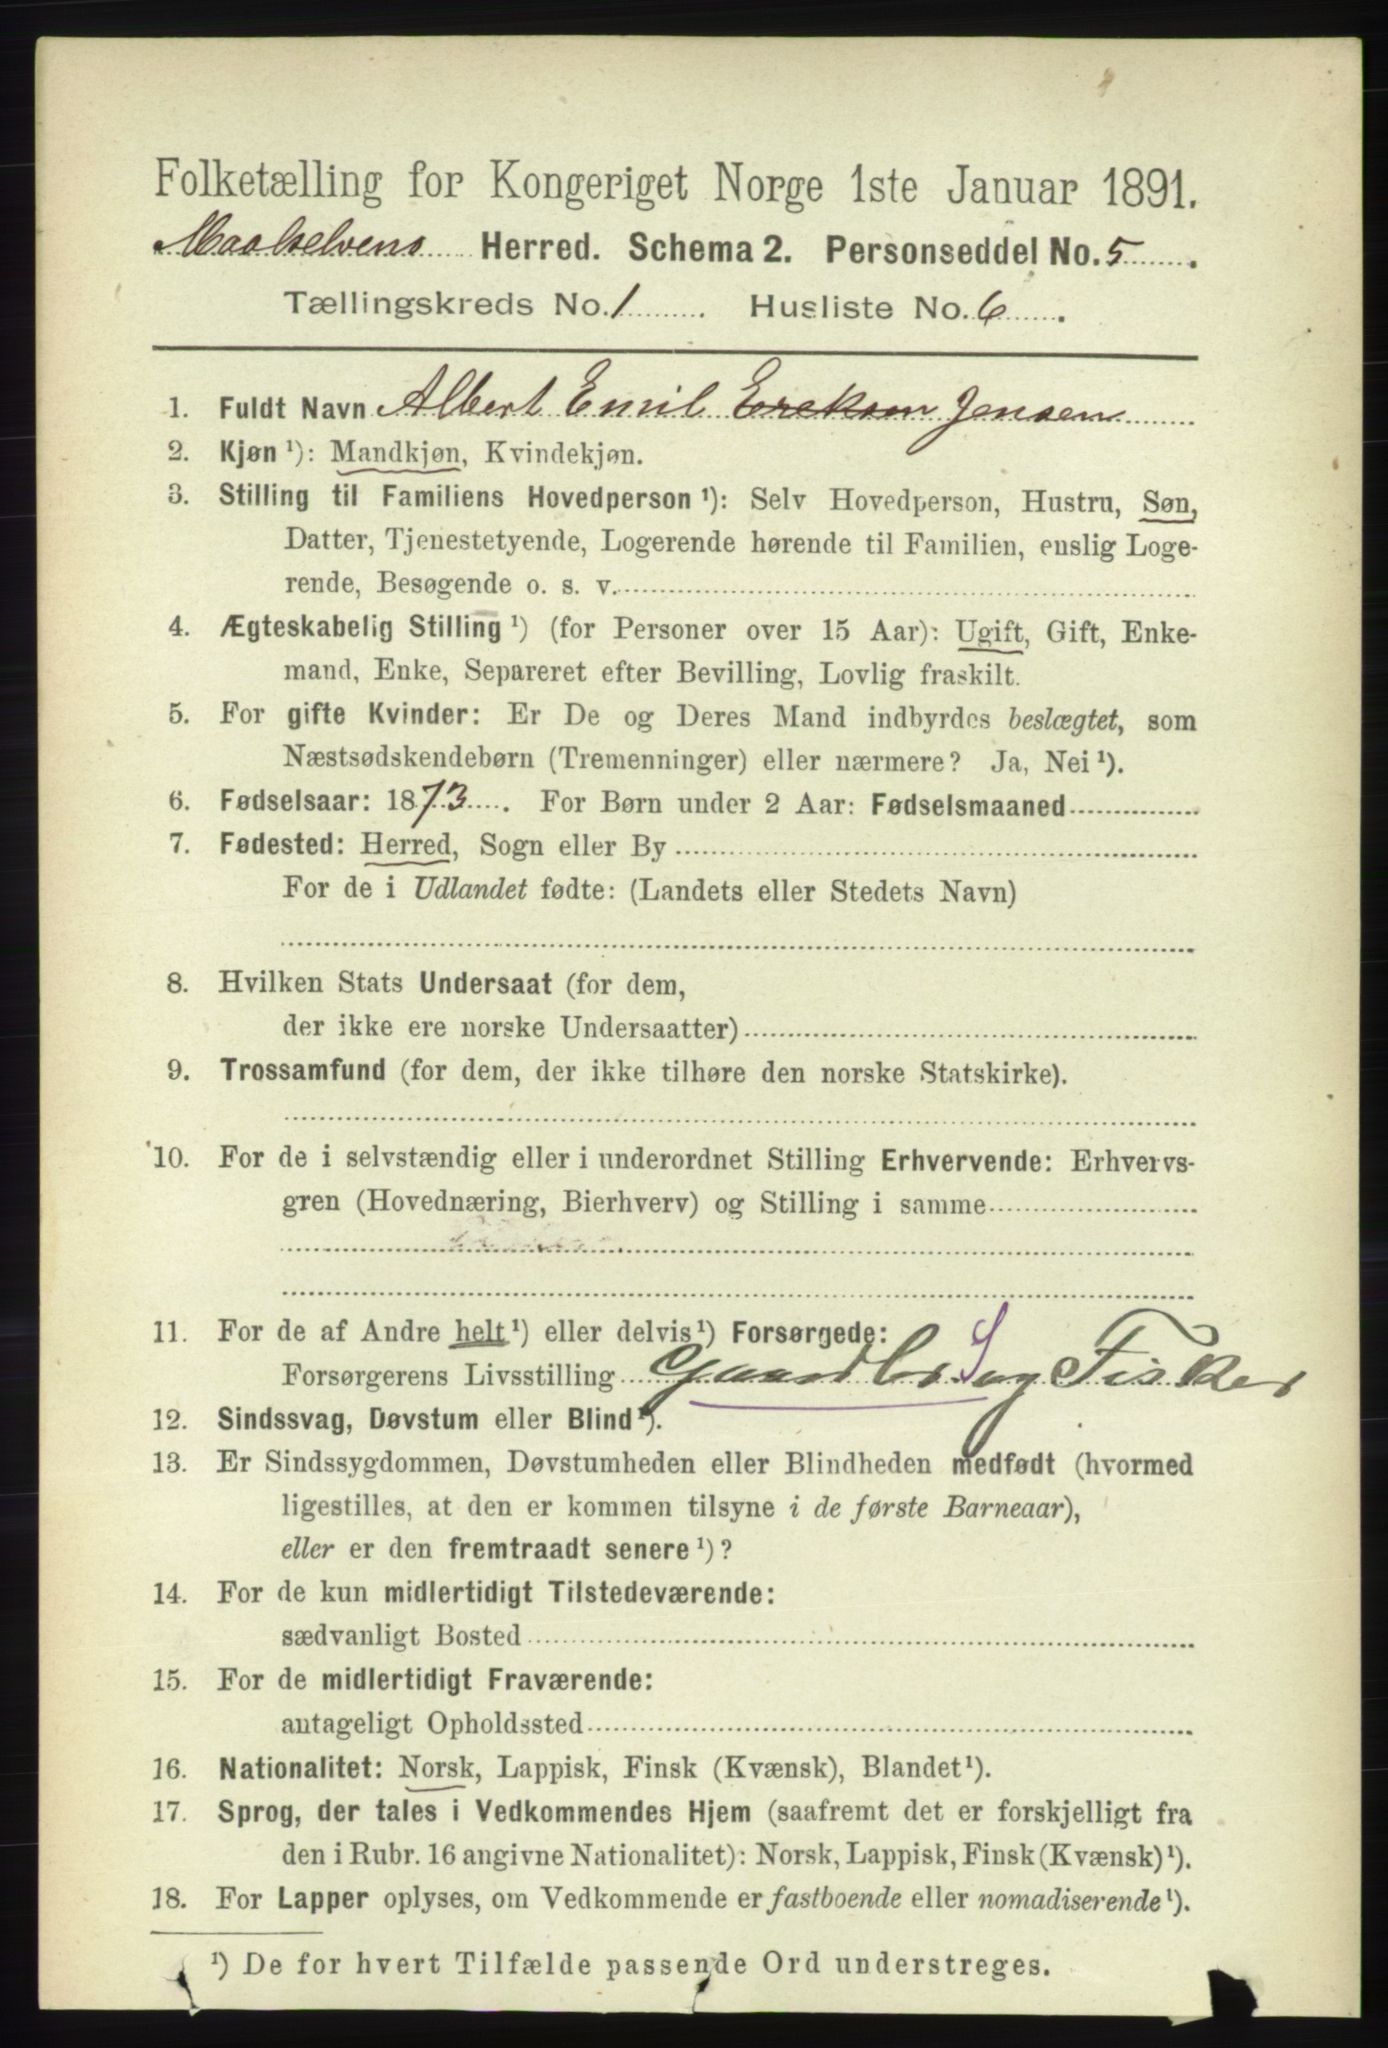 Folketælling for Kongeriget Norge 1ste Januar 1891.
Maalselvens Herred. Schema 2. Personseddel No. 5.
Tællingskreds No. 1. Husliste No. 6.
1. Fuldt Navn Albert Emil Erekson Jensen
2. Kjøn ¹): Mandkjøn, Kvindekjøn.
3. Stilling til Familiens Hovedperson ¹): Selv Hovedperson, Hustru, Søn,
Datter, Tjenestetyende, Logerende hørende til Familien, enslig Loge-
rende, Besøgende o. s. v.
4. Ægteskabelig Stilling ¹) (for Personer over 15 Aar): Ugift, Gift, Enke-
mand, Enke, Separeret efter Bevilling, Lovlig fraskilt.
5. For gifte Kvinder: Er De og Deres Mand indbyrdes beslægtet, som
Næstsødskendebørn (Tremenninger) eller nærmere? Ja, Nei ¹).
6. Fødselsaar: 1873. For Børn under 2 Aar: Fødselsmaaned
7. Fødested: Herred, Sogn eller By
For de i Udlandet fødte: (Landets eller Stedets Navn)
8. Hvilken Stats Undersaat (for dem,
der ikke ere norske Undersaatter)
9. Trossamfund (for dem, der ikke tilhøre den norske Statskirke).
10. For de i selvstændig eller i underordnet Stilling Erhvervende: Erhvervs-
gren (Hovednæring, Bierhverv) og Stilling i samme
11. For de af Andre helt ¹) eller delvis ¹) Forsørgede:
Forsørgerens Livsstilling Gaardbr S og Fisker
12. Sindssvag, Døvstum eller Blind ¹).
13. Er Sindssygdommen, Døvstumheden eller Blindheden medfødt (hvormed
ligestilles, at den er kommen tilsyne i de første Barneaar),
eller er den fremtraadt senere ¹)?
14. For de kun midlertidigt Tilstedeværende:
sædvanligt Bosted
15. For de midlertidigt Fraværende:
antageligt Opholdssted
16. Nationalitet: Norsk, Lappisk, Finsk (Kvænsk), Blandet ¹).
17. Sprog, der tales i Vedkommendes Hjem (saafremt det er forskjelligt fra
den i Rubr. 16 angivne Nationalitet): Norsk, Lappisk, Finsk (Kvænsk) ¹).
18. For Lapper oplyses, om Vedkommende er fastboende eller nomadiserende ¹).
¹) De for hvert Tilfælde passende Ord understreges.